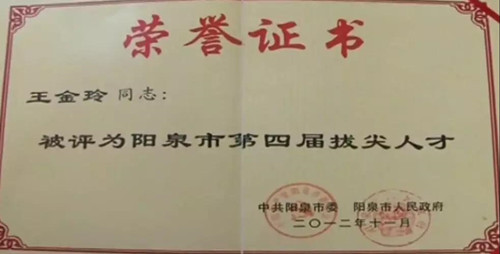 荣誉证书
王金玲 同志：
被评为阳泉市第四届拔尖人才
中共阳泉市委 阳泉市人民政府
二〇一二年十一月